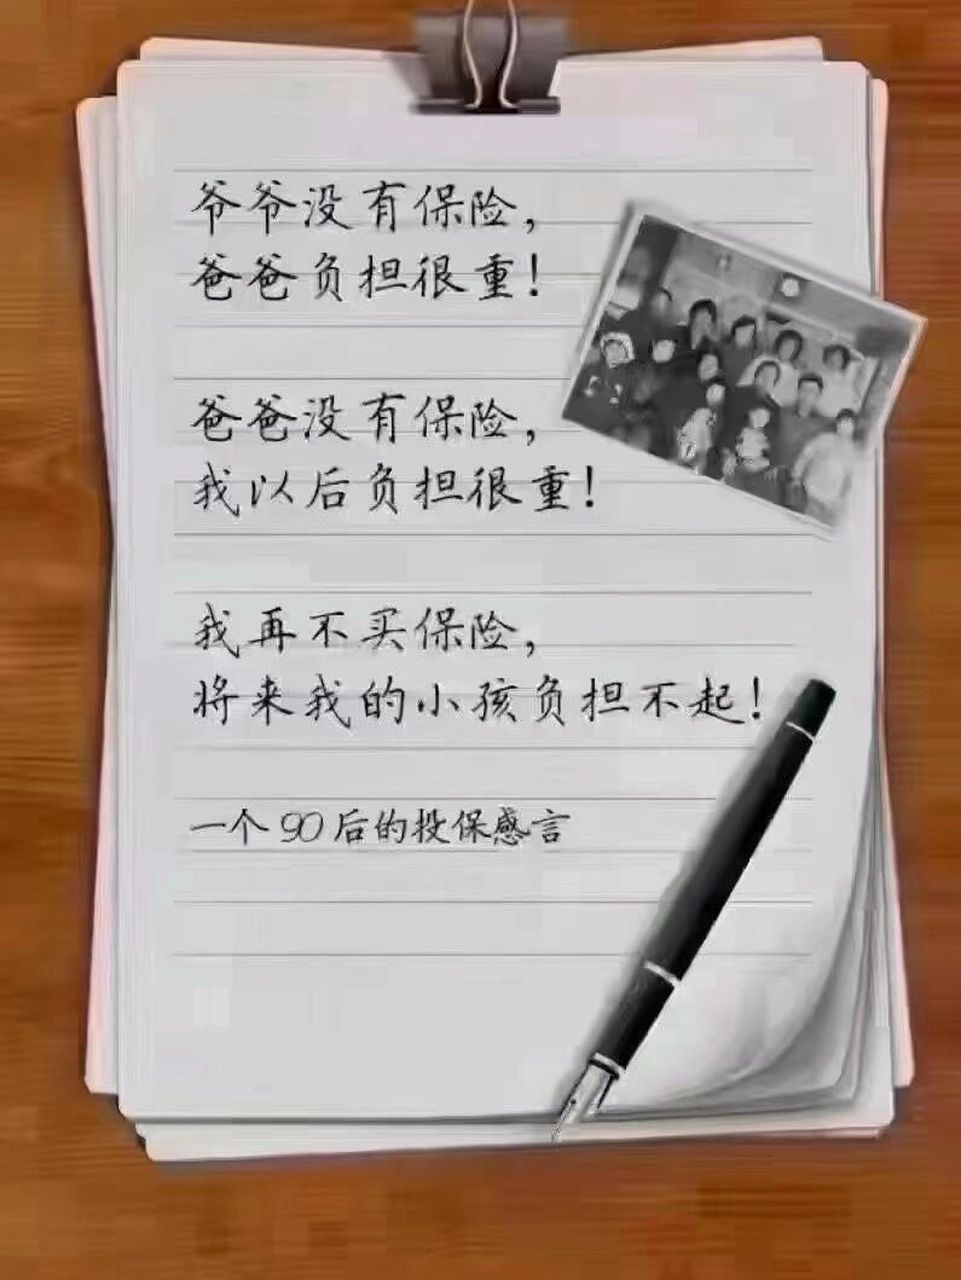 爷爷没有保险，
爸爸负担很重！
爸爸没有保险，
我以后负担很重！
我再不买保险，
将来我的小孩负担不起！
一个90后的投保感言